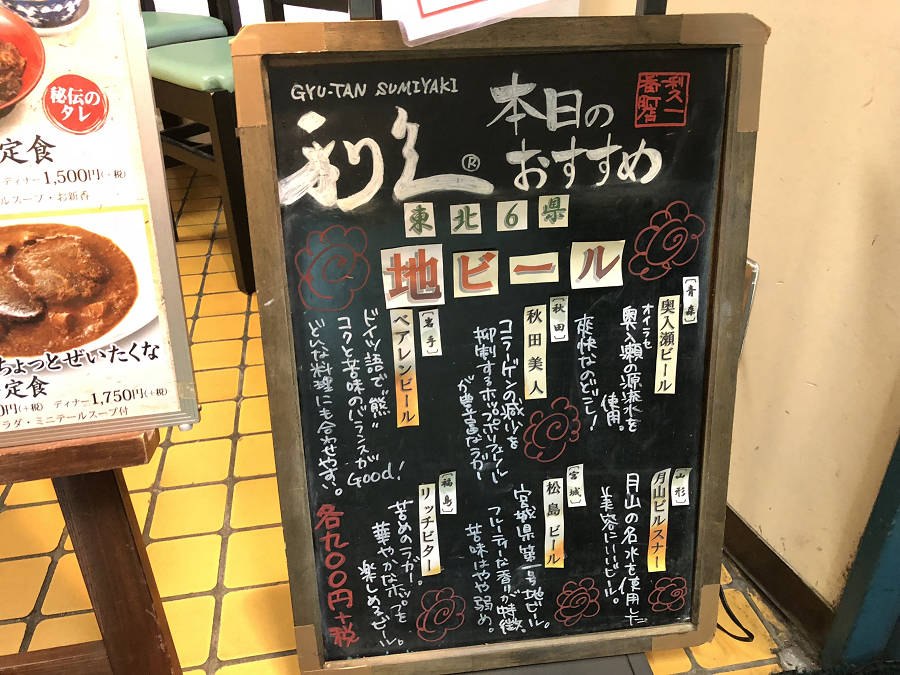 秘伝の
タレ
定食
ディナー1,500円(+税)
ールスープ・お新香
ちょっとぜいたくな
定食
0円(+税) ディナー1,750円(+税)
ラダ・ミニテールスープ付
GYU-TAN SUMIYAKI
利久®
本日の
おすすめ
利久一
東北6県
地ビール
[青森]
奥入瀬ビール
オイラセ
奥入瀬の源流水を
使用。
爽快なのどごし!
[秋田]
秋田美人
コラーゲンの減少を
抑制するホップポリフェノール
が豊富なラガー
[岩手]
ベアレンビール
ドイツ語で"熊"
コクと苦味のバランスがGood!
どんな料理にも合わせやすい。
[山形]
月山ピルスナー
月山の名水を使用した
美容にいいビール。
[宮城]
松島ビール
宮城県第一号地ビール。
フルーティーな香りが特徴、
苦味はやや弱め。
[福島]
リッチビター
苦めのラガー。
華やかなホップを
楽しめるビール。
各九〇〇円+税